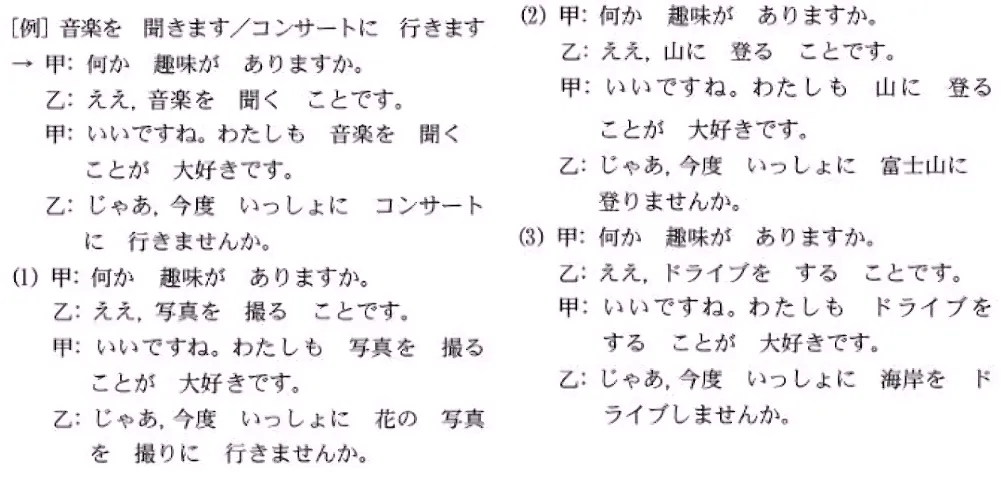 [例] 音楽を 聞きます／コンサートに 行きます
→ 甲: 何か 趣味が ありますか。
乙: ええ, 音楽を 聞く ことです。
甲: いいですね。わたしも 音楽を 聞く
ことが 大好きです。
乙: じゃあ, 今度 いっしょに コンサート
に 行きませんか。
(1) 甲: 何か 趣味が ありますか。
乙: ええ, 写真を 撮る ことです。
甲: いいですね。わたしも 写真を 撮る
ことが 大好きです。
乙: じゃあ, 今度 いっしょに 花の 写真
を 撮りに 行きませんか。
(2) 甲: 何か 趣味が ありますか。
乙: ええ, 山に 登る ことです。
甲: いいですね。わたしも 山に 登る
ことが 大好きです。
乙: じゃあ, 今度 いっしょに 富士山に
登りませんか。
(3) 甲: 何か 趣味が ありますか。
乙: ええ, ドライブを する ことです。
甲: いいですね。わたしも ドライブを
する ことが 大好きです。
乙: じゃあ, 今度 いっしょに 海岸を ド
ライブしませんか。